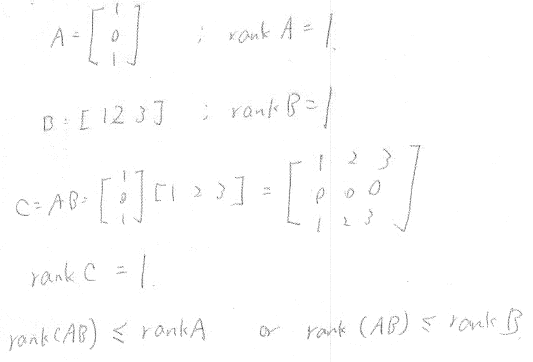 A = [1 0 1] ; rank A = 1.
B = [1 2 3] ; rank B = 1
C = AB = [1 0 1] [1 2 3] = [1 2 3 0 0 0 1 2 3]
rank C = 1.
rank(AB) ≤ rank A or rank (AB) ≤ rank B